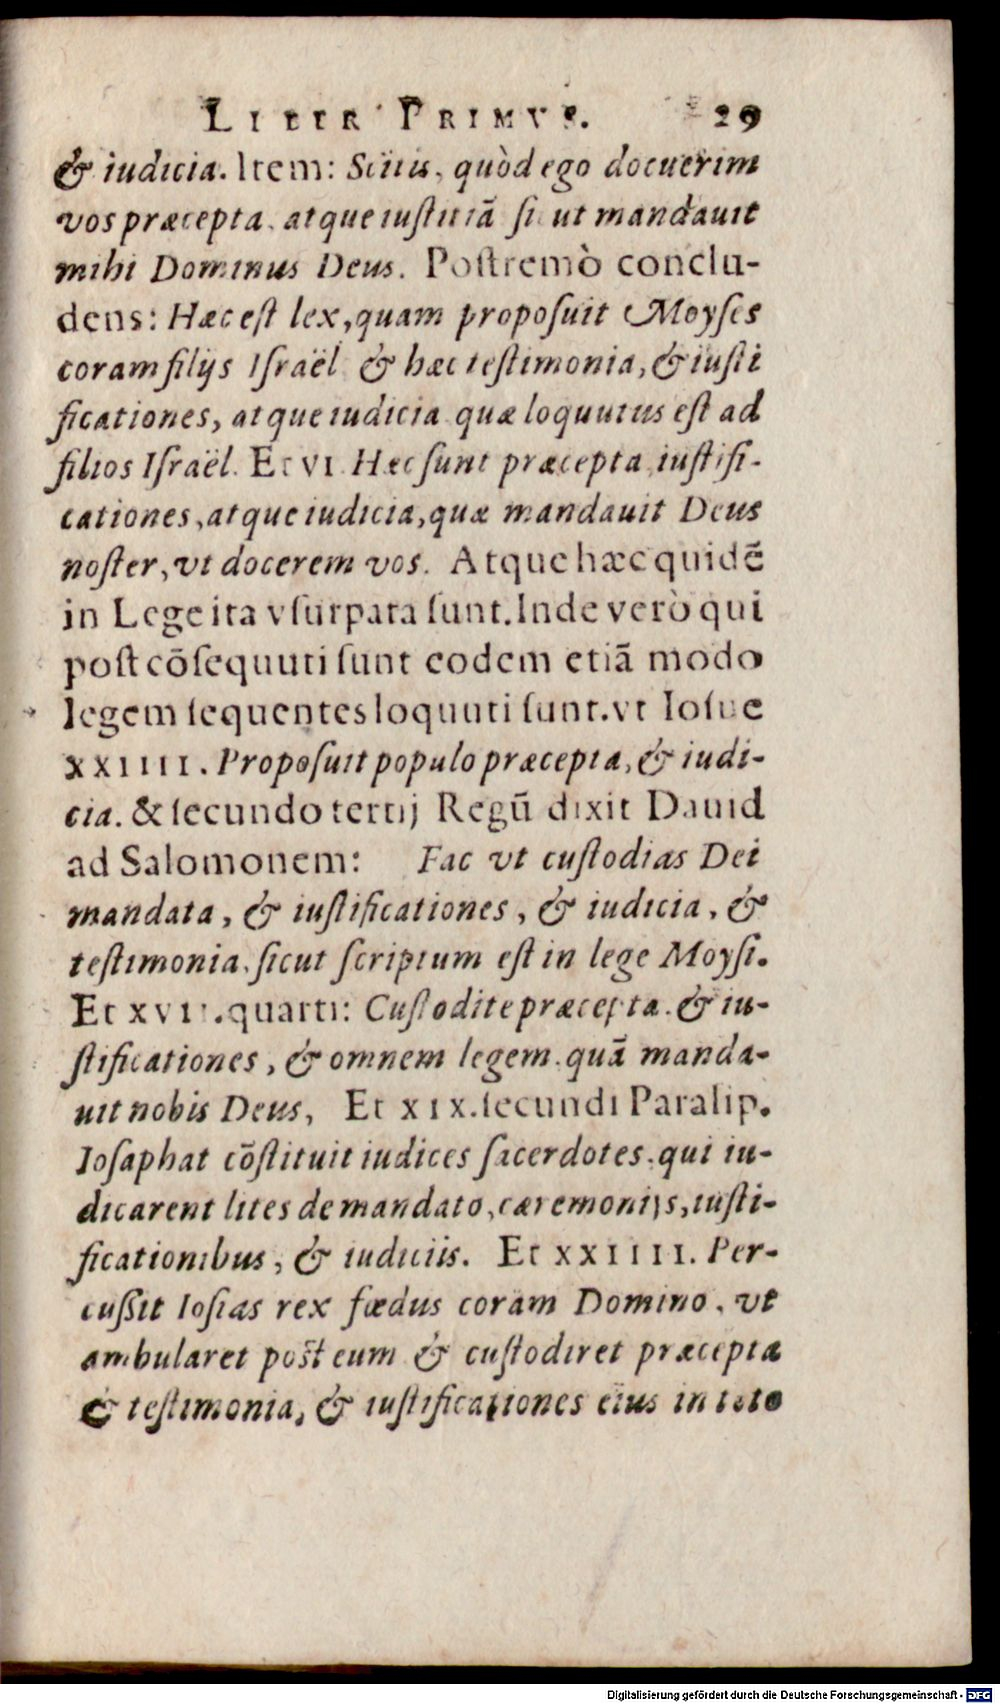 LIBER PRIMVS. 29
& iudicia. Item: Scitis, quòd ego docuerim
vos præcepta, atque iustitiã sicut mandauit
mihi Dominus Deus. Postremò conclu-
dens: Hæc est lex, quam proposuit Moyses
coram filijs Israël & hæc testimonia, & iusti
ficationes, atque iudicia quæ loquutus est ad
filios Israël. Et VI. Hæc sunt præcepta, iustifi-
cationes, atque iudicia, quæ mandauit Deus
noster, vt docerem vos. Atque hæc quidẽ
in Lege ita vsurpata sunt. Inde verò qui
post cõsequuti sunt eodem etiã modo
legem sequentes loquuti sunt. vt Iosue
XXIIII. Proposuit populo præcepta, & iudi-
cia. & secundo tertij Regũ dixit Dauid
ad Salomonem: Fac vt custodias Dei
mandata, & iustificationes, & iudicia, &
testimonia, sicut scriptum est in lege Moysi.
Et XVII. quarti: Custodite præcepta. & iu-
stificationes, & omnem legem. quã manda-
uit nobis Deus, Et XIX. secundi Paralip.
Iosaphat cõstituit iudices sacerdotes, qui iu-
dicarent lites de mandato, cæremonijs, iusti-
ficationibus, & iudiciis. Et XXIIII. Per-
cussit Iosias rex fœdus coram Domino, vt
ambularet post eum & custodiret præcepta
& testimonia, & iustificationes eius in toto
Digitalisierung gefördert durch die Deutsche Forschungsgemeinschaft - DFG